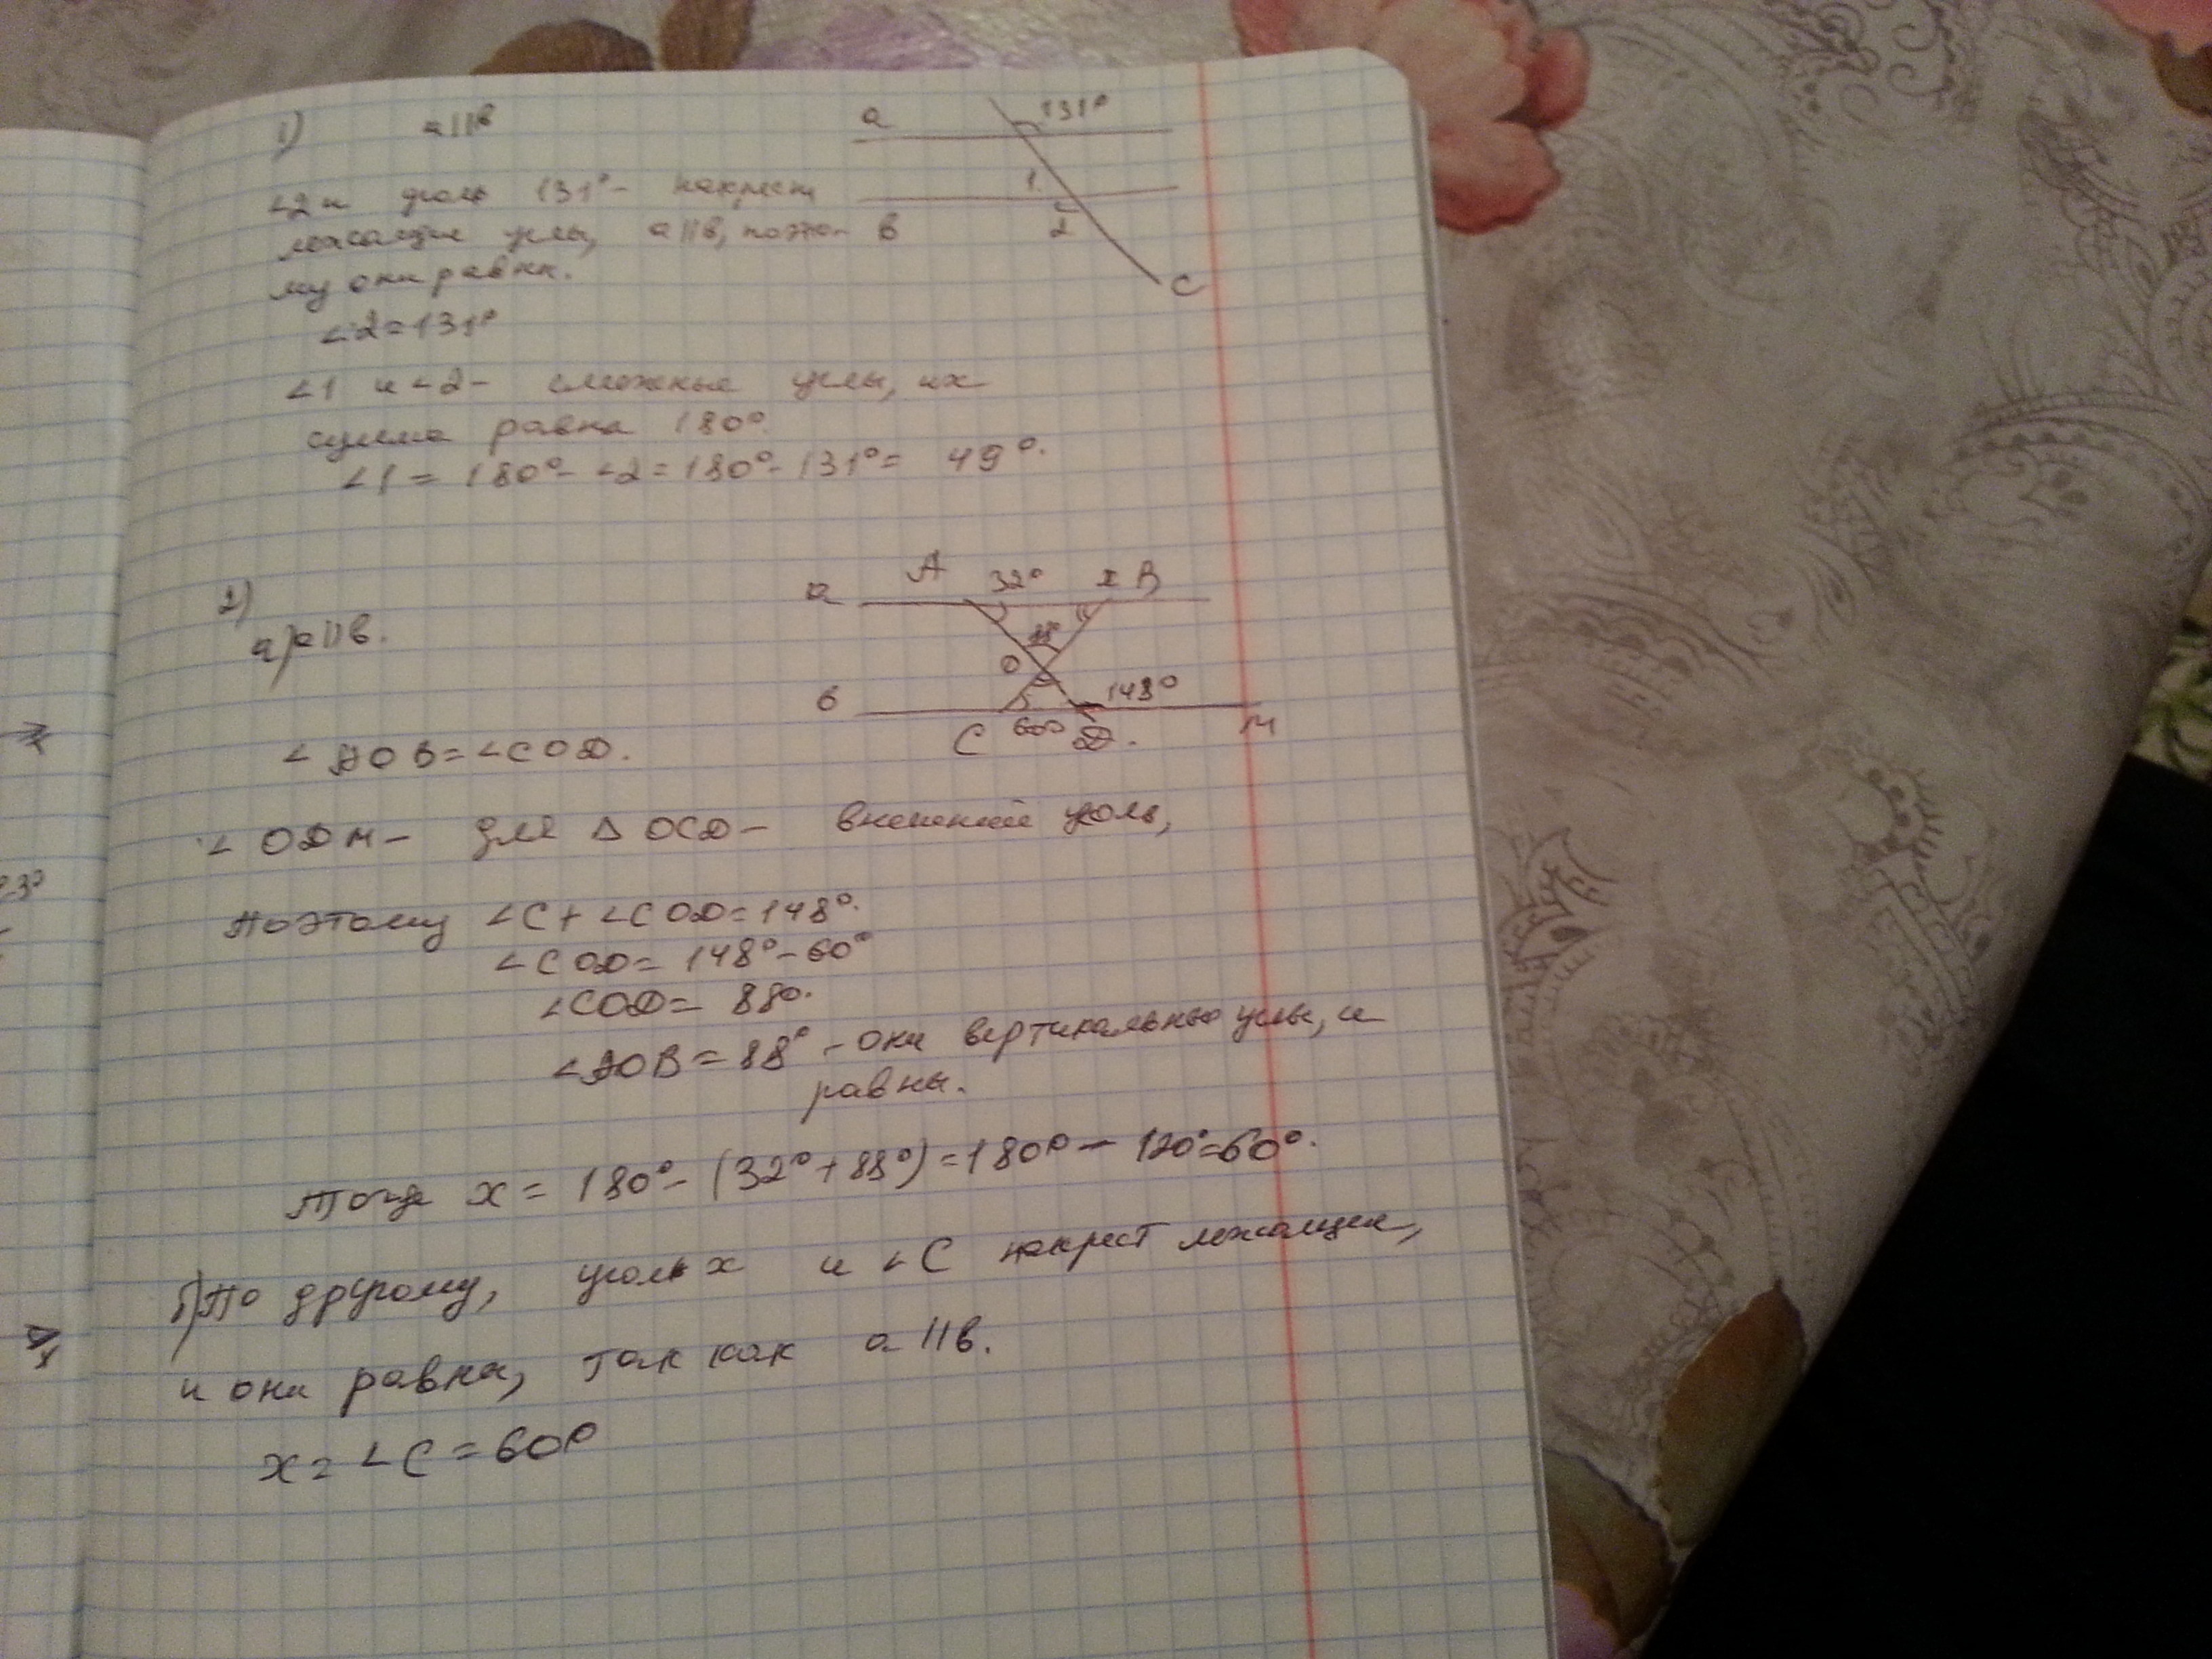 1) a||в
a 131°
∠2 и угол 131° - накрест 1
лежащие углы, a||в, поэто- в 2
му они равны. C
∠2=131°
∠1 и ∠2 - смежные углы, их
сумма равна 180°.
∠1 = 180° - ∠2 = 180° - 131° = 49°.
2)
a A 32° x B
а) a||в.
88°
O
в 148°
C 60° D. M
∠AOB = ∠COD.
∠ODM - для △ OCD - внешний угол,
Поэтому ∠C + ∠COD = 148°.
∠COD = 148° - 60°
∠COD = 88°.
∠AOB = 88° - они вертикальные углы, и
равны.
Тогда x = 180° - (32° + 88°) = 180° - 120° = 60°.
б) По другому, угол x и ∠C накрест лежащие,
и они равны, так как a||в.
x = ∠C = 60°